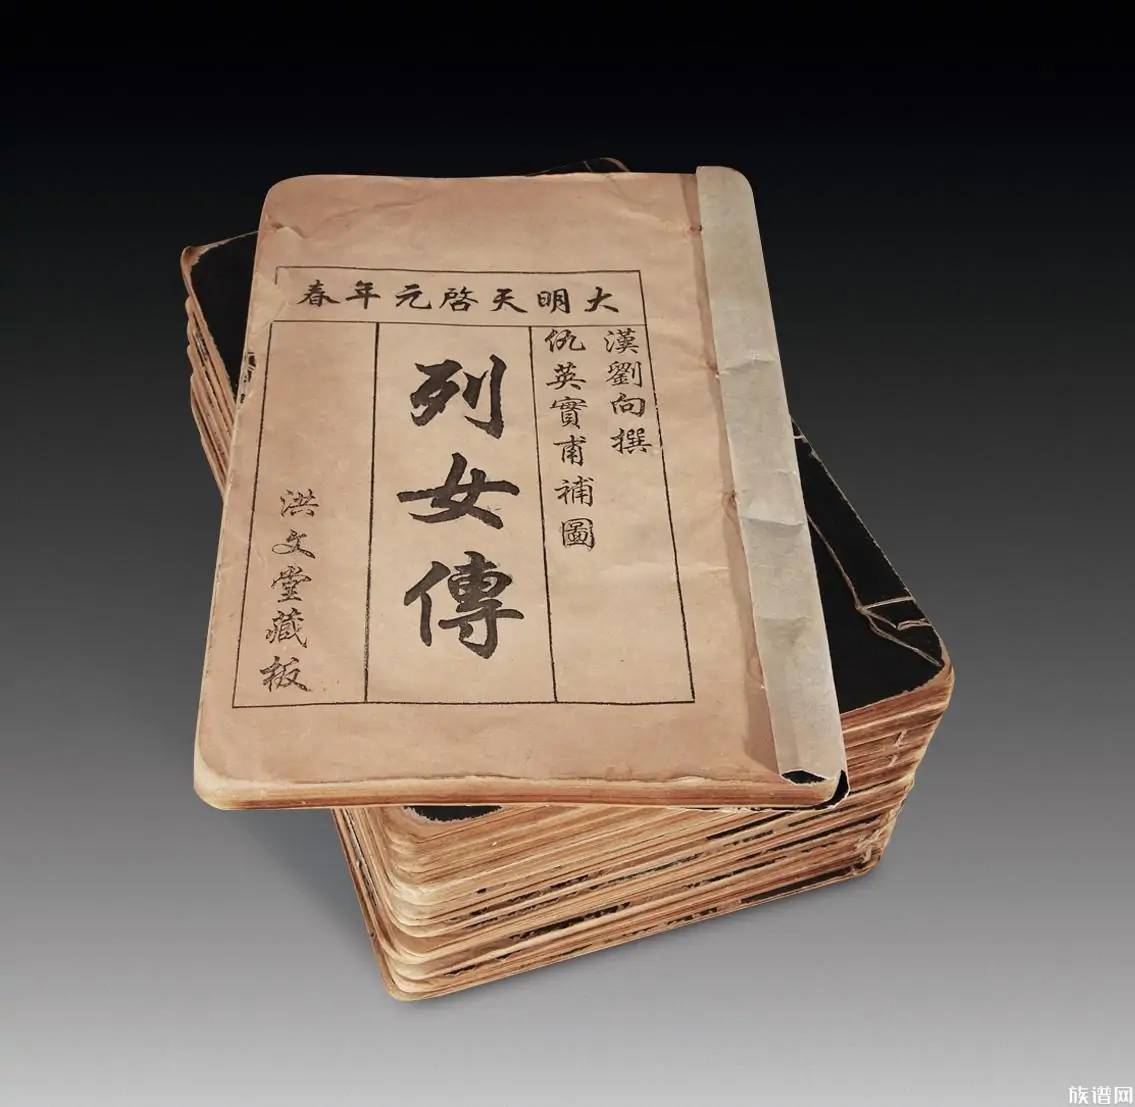 大明天啓元年春
漢劉向撰
仇英實甫補圖
列女傳
洪文堂藏板
族谱网